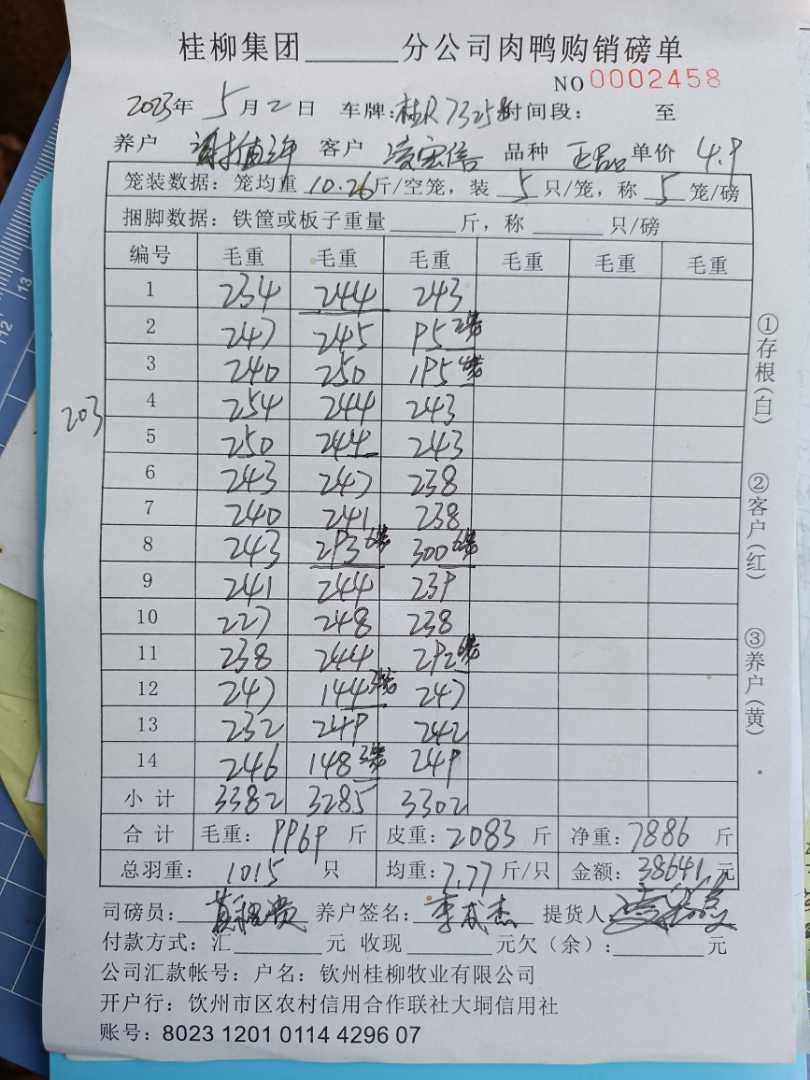 桂柳集团______分公司肉鸭购销磅单
NO 0002458
2023年 5月2日 车牌:桂R7325 时间段: 至
养户 客户 凌宏信 品种 正品 单价 4.9
笼装数据:笼均重 10.26斤/空笼,装 5 只/笼,称 5 笼/磅
捆脚数据:铁筐或板子重量______斤,称______只/磅
编号 毛重 毛重 毛重 毛重 毛重 毛重
1 234 244 243
2 247 245 95 2笼
3 240 250 195 4笼
203
4 254 244 243
5 250 244 243
6 243 247 238
7 240 241 238
8 243 293 6笼 300 6笼
9 241 244 239
10 227 248 238
11 238 244 292 6笼
12 247 144 3笼 247
13 232 249 242
14 246 148 3笼 249
小计 3382 3285 3302
合计 毛重:9969 斤 皮重:2083 斤 净重:7886 斤
总羽重: 1015 只 均重:7.77斤/只 金额:38641元
司磅员: 养户签名:李成杰 提货人
付款方式:汇______元 收现______元欠(余):______元
公司汇款帐号:户名:钦州桂柳牧业有限公司
开户行:钦州市区农村信用合作联社大垌信用社
账号:8023 1201 0114 4296 07
①存根(白)
②客户(红)
③养户(黄)